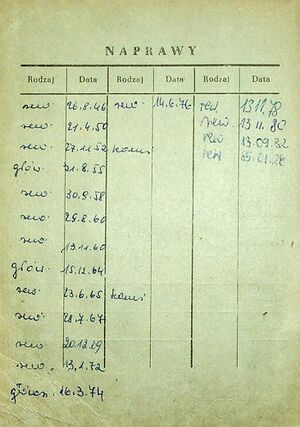 NAPRAWY
Rodzaj Data Rodzaj Data Rodzaj Data
rew. 26.8.46 rew. 14.6.76 rew 13.11.78
rew. 21.4.50 rew. 13.11.80
rew. 27.11.52 rew 13.09.82
głów. 31.8.55
rew. 30.8.58
rew. 25.8.60
rew. 19.11.60
głów. 15.12.64
rew. 23.6.65
rew. 28.7.67
rew. 20.12.69
rew. 13.1.72
główn. 16.3.74